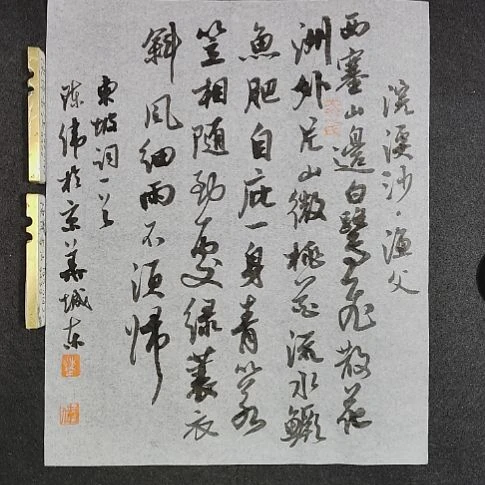 浣溪沙·渔父
西塞山邊白鹭飞散花
洲外片山微桃花流水鳜
鱼肥自庇一身青箬
笠相随到處绿蓑衣
斜风细雨不须归
東坡词一首
陈伟於京华城东